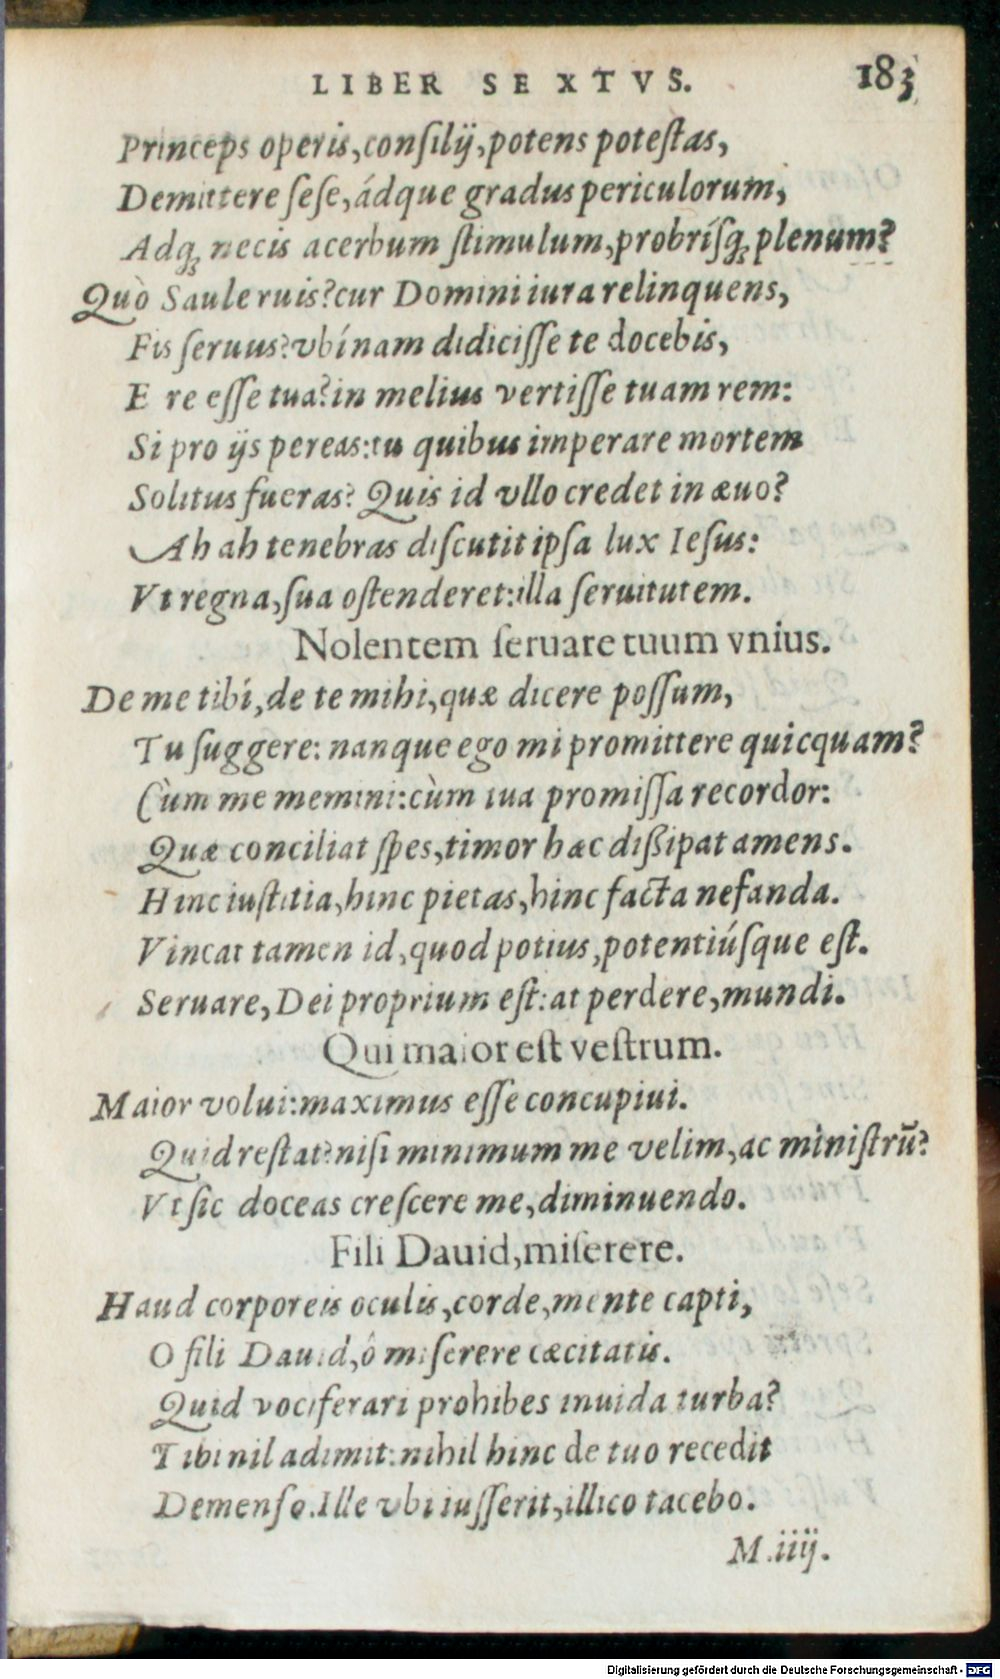 LIBER SEXTVS. 183
Princeps operis, consilij, potens potestas,
Demittere sese, ádque gradus periculorum,
Adq; necis acerbum stimulum, probrísq; plenum?
Quò Saule ruis? cur Domini iura relinquens,
Fis seruus? vbínam didicisse te docebis,
E re esse tua? in melius vertisse tuam rem:
Si pro ijs pereas: tu quibus imperare mortem
Solitus fueras? Quis id vllo credet in æuo?
Ah ah tenebras discutit ipsa lux Iesus:
Vt regna, sua ostenderet: illa seruitutem.
Nolentem seruare tuum vnius.
De me tibí, de te mihi, quæ dicere possum,
Tu suggere: nanque ego mi promittere quicquam?
Cùm me memini: cùm tua promissa recordor:
Quæ conciliat spes, timor hæc dißipat amens.
Hinc iustitia, hinc pietas, hinc facta nefanda.
Vincat tamen id, quod potius, potentiúsque est.
Seruare, Dei proprium est: at perdere, mundi.
Qui maior est vestrum.
Maior volui: maximus esse concupiui.
Quid restat? nisi minimum me velim, ac ministrũ?
Vt sic doceas crescere me, diminuendo.
Fili Dauid, miserere.
Haud corporeis oculis, corde, mente capti,
O fili Dauid, ô miserere cæcitatis.
Quid vociferari prohibes inuida turba?
Tibi nil adimit: nihil hinc de tuo recedit
Demenso. Ille vbi iusserit, illico tacebo.
M.iiij.
Digitalisierung gefördert durch die Deutsche Forschungsgemeinschaft - DFG